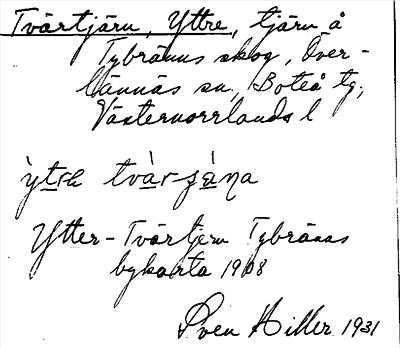 Tvärtjärn, Yttre, tjärn å
Tybränns skog, Över-
lännäs sn, Boteå tg,
Västernorrlands l
Ytter-Tvärtjern Tybränns
bykarta 1908
Sven Hiller 1931